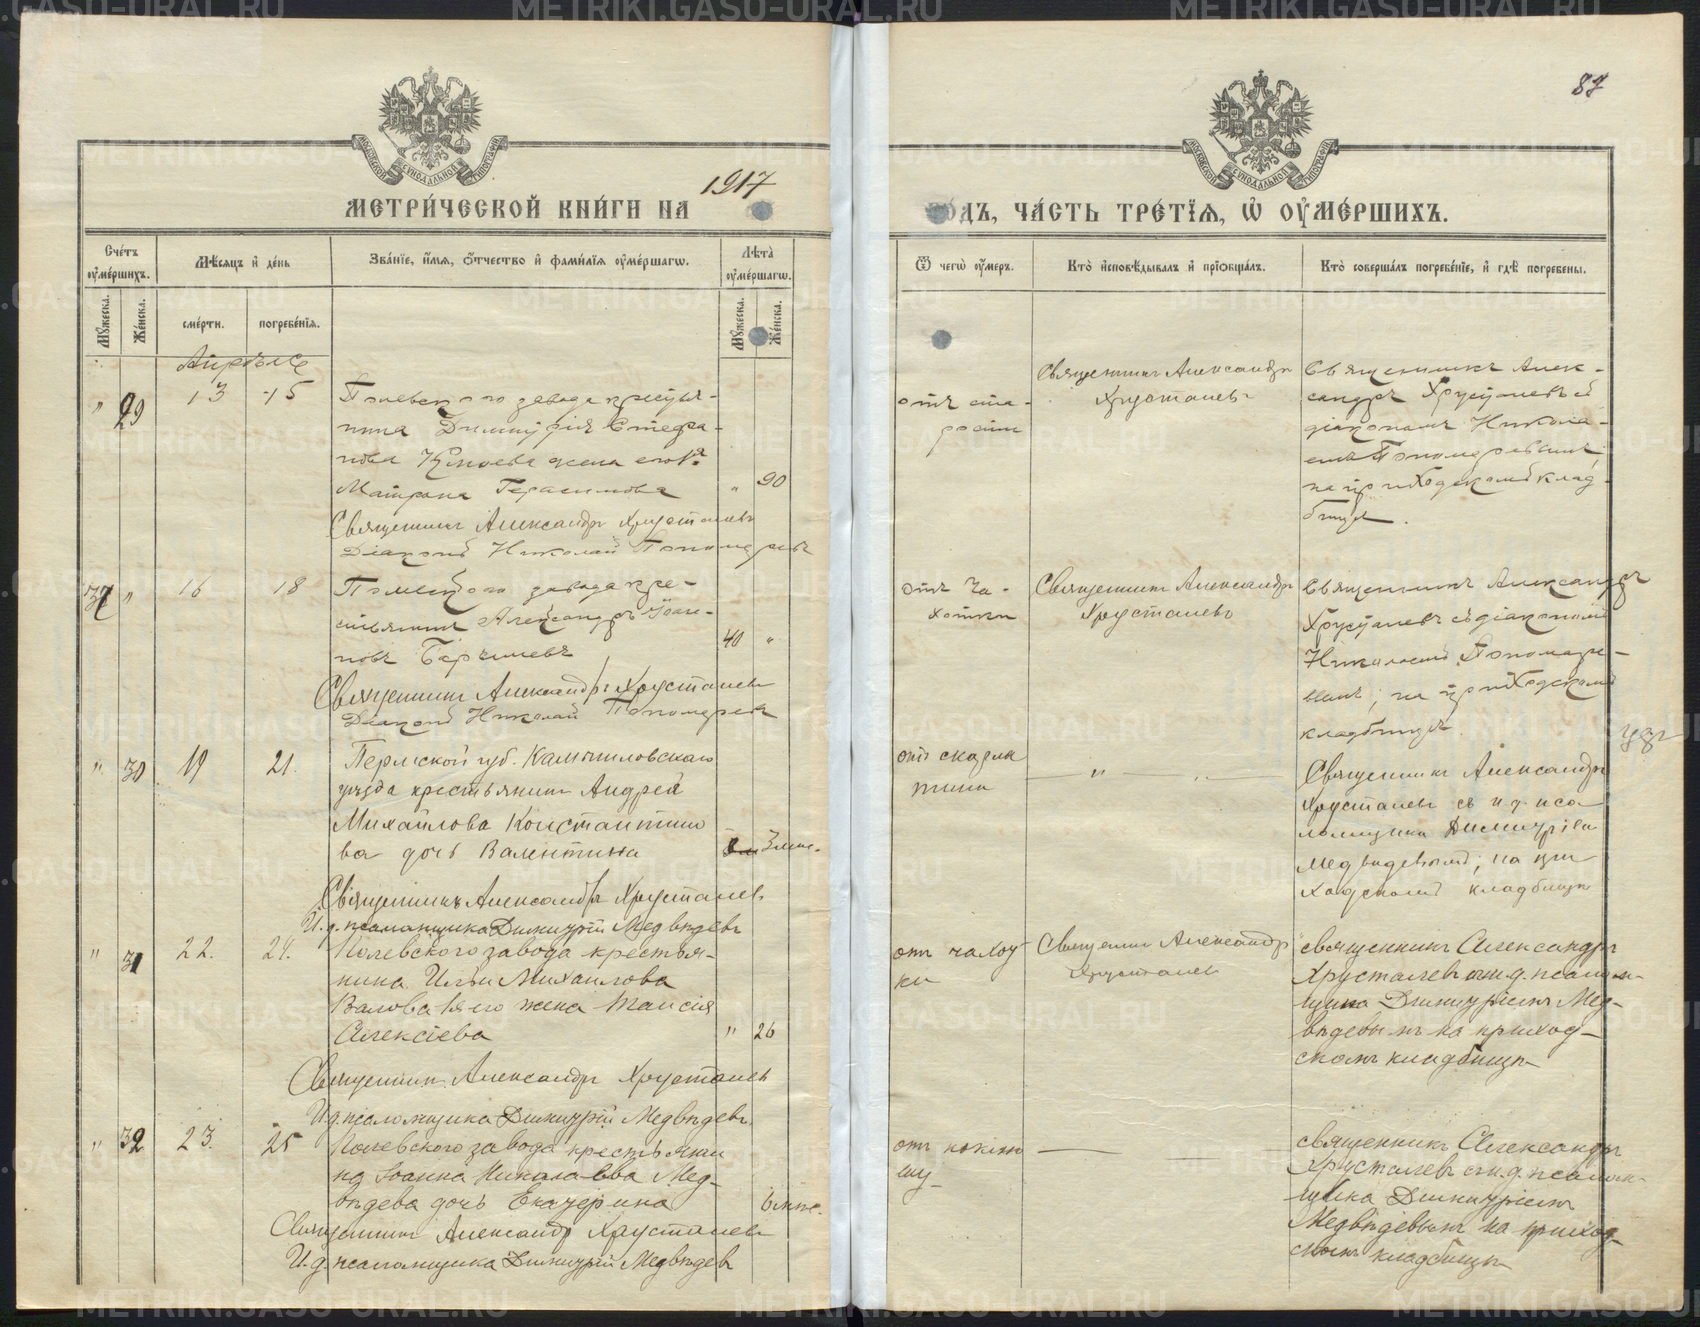 87
МОСКОВСКОЙ СѴНОДАЛЬНОЙ ТИПОГРАФІИ
МОСКОВСКОЙ СѴНОДАЛЬНОЙ ТИПОГРАФІИ
МЕТРИ́ЧЕСКОЙ КНИ́ГИ НА 1917
ГО́ДЪ, ЧА́СТЬ ТРЕ́ТЇѦ, Ѡ҆ ОУ҆МЕ́РШИХЪ.
Сче́тъ оу҆ме́ршихъ.
Мѣ́сѧцъ и҆ де́нь
Зва́нїе, и҆́мѧ, ѻ҆́тчество и҆ фами́лїѧ оу҆ме́ршагѡ.
Лѣ́та оу҆ме́ршагѡ.
Ѿ чегѡ̀ оу҆́меръ.
Кто̀ и҆сповѣ́дывалъ и҆ прїѡбща́лъ.
Кто̀ соверша́лъ погребе́нїе, и҆ гдѣ̀ погребены.
Мꙋ́жеска.
Же́нска.
сме́рти.
погребе́нїѧ.
Мꙋ́жеска.
Же́нска.
Апрѣль
" 29 13 15
Полевского завода крестья-
нина Димитрія Стефа-
нова жена его
Матрона Герасимова " 90
Священникъ Александръ Хрусталевъ
Діаконъ Николай Пономаревъ
отъ ста-
рости
Священникъ Александръ
Хрусталевъ
Священникъ Алек-
сандръ Хрусталевъ съ
діакономъ Никола-
емъ Пономаревымъ
на приходскомъ клад-
бищѣ.
" 16 18
Полевского завода кре-
стьянинъ Александръ Іоан-
новъ 40 "
Священникъ Александръ Хрусталевъ
Діаконъ Николай Пономаревъ
отъ ча-
хотки
Священникъ Александръ
Хрусталевъ
Священникъ Александръ
Хрусталевъ съ діакономъ
Николаемъ Пономаре-
вымъ, на приходскомъ
кладбищѣ.
" 30 19 21.
Пермской губ. Камышловскаго
уѣзда крестьянина Андрея
Михайлова Константино
ва дочь Валентина 3 мѣс.
Священникъ Александръ Хрусталевъ
И. д. псаломщика Димитрій Медвѣдевъ
отъ скарла
тины
— " — " —
Священникъ Александръ
Хрусталевъ съ и. д. пса
ломщика Димитріемъ
Медвѣдевымъ, на при
ходскомъ кладбищѣ
" 31 22. 24.
Полевского завода крестья-
нина Ильи Михаилова
Валова жена Таисія
Алексіева " 26
Священникъ Александръ Хрусталевъ
И. д. псаломщика Димитрій Медвѣдевъ
отъ чахот
ки
Священникъ Александръ
Хрусталевъ
священникъ Александръ
Хрусталевъ съ и. д. псалом-
щика Димитріемъ Мед-
вѣдевымъ на приход-
скомъ кладбищѣ
" 32 23. 25
Полевского завода крестьяни
на Іоанна Николаева Мед-
вѣдева дочь Екатерина 6 мѣс.
Священникъ Александръ Хрусталевъ
И. д. псаломщика Димитрій Медвѣдевъ
отъ коклю
шу
— —
священникъ Александръ
Хрусталевъ съ и. д. псалом-
щика Димитріемъ
Медвѣдевымъ на приход-
скомъ кладбищѣ
METRIKI.GASO-URAL.RU